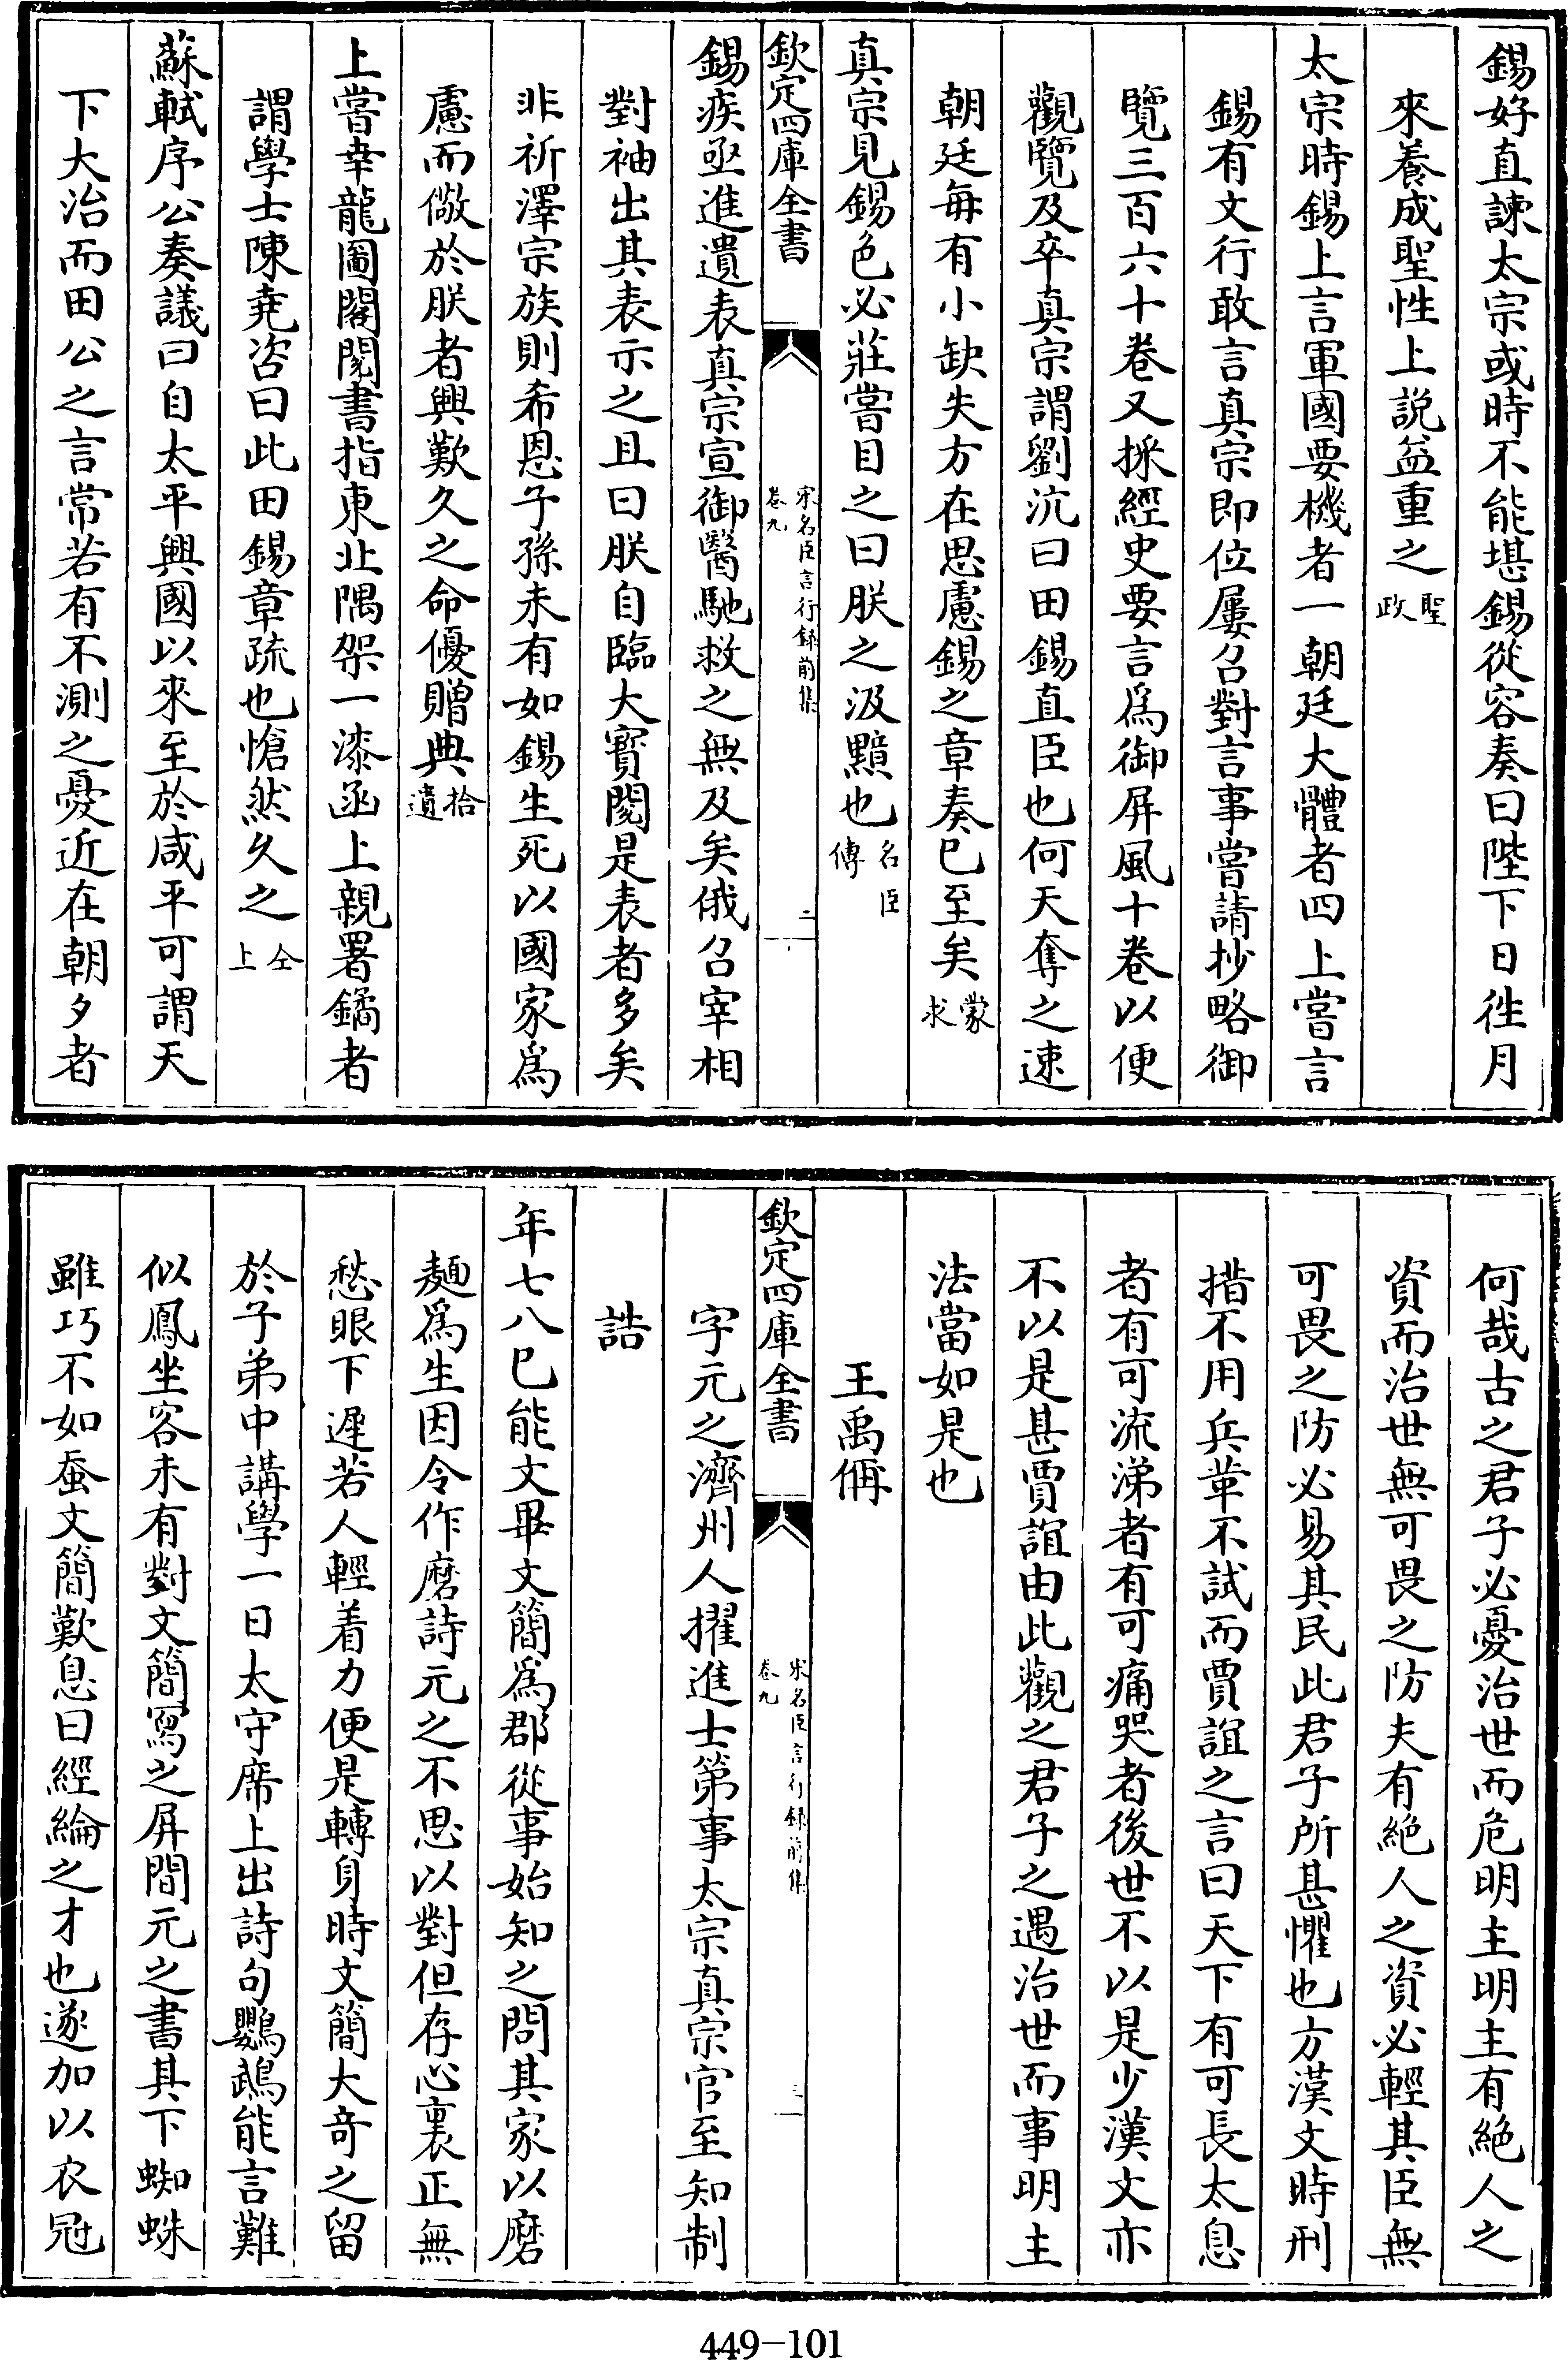 錫好直諫太宗或時不能堪錫從容奏曰陛下日徃月
來養成聖性上説益重之聖政
太宗時錫上言軍國要機者一朝廷大體者四上嘗言
錫有文行敢言真宗即位屢召對言事嘗請抄略御
覽三百六十卷又採經史要言爲御屏風十卷以便
觀覽及卒真宗謂劉沆曰田錫直臣也何天奪之速
朝廷毎有小缺失方在思慮錫之章奏已至矣蒙求
真宗見錫色必莊嘗目之曰朕之汲黯也名臣傳
欽定四庫全書
宋名臣言行錄前集
卷九
二
錫疾亟進遺表真宗宣御醫馳救之無及矣俄召宰相
對袖出其表示之且曰朕自臨大寳閱是表者多矣
非祈澤宗族則希恩子孫未有如錫生死以國家爲
慮而儆於朕者興歎久之命優贈典拾遺
上嘗幸龍圖閣閱書指東北隅架一漆函上親署鐍者
謂學士陳堯咨曰此田錫章疏也愴然久之仝上
蘇軾序公奏議曰自太平興國以來至於咸平可謂天
下大治而田公之言常若有不測之憂近在朝夕者
何哉古之君子必憂治世而危明主明主有絶人之
資而治世無可畏之防夫有絶人之資必輕其臣無
可畏之防必易其民此君子所甚懼也方漢文時刑
措不用兵革不試而賈誼之言曰天下有可長太息
者有可流涕者有可痛哭者後世不以是少漢文亦
不以是甚賈誼由此觀之君子之遇治世而事明主
法當如是也
王禹偁
欽定四庫全書
宋名臣言行錄前集
卷九
三
字元之濟州人擢進士第事太宗真宗官至知制
誥
年七八已能文畢文簡爲郡從事始知之問其家以磨
麺爲生因令作磨詩元之不思以對但存心裏正無
愁眼下遲若人輕着力便是轉身時文簡大竒之留
於子弟中講學一日太守席上出詩句鸚鵡能言難
似鳳坐客未有對文簡寫之屏間元之書其下蜘蛛
雖巧不如蚕文簡歎息曰經綸之才也遂加以衣冠
449-101